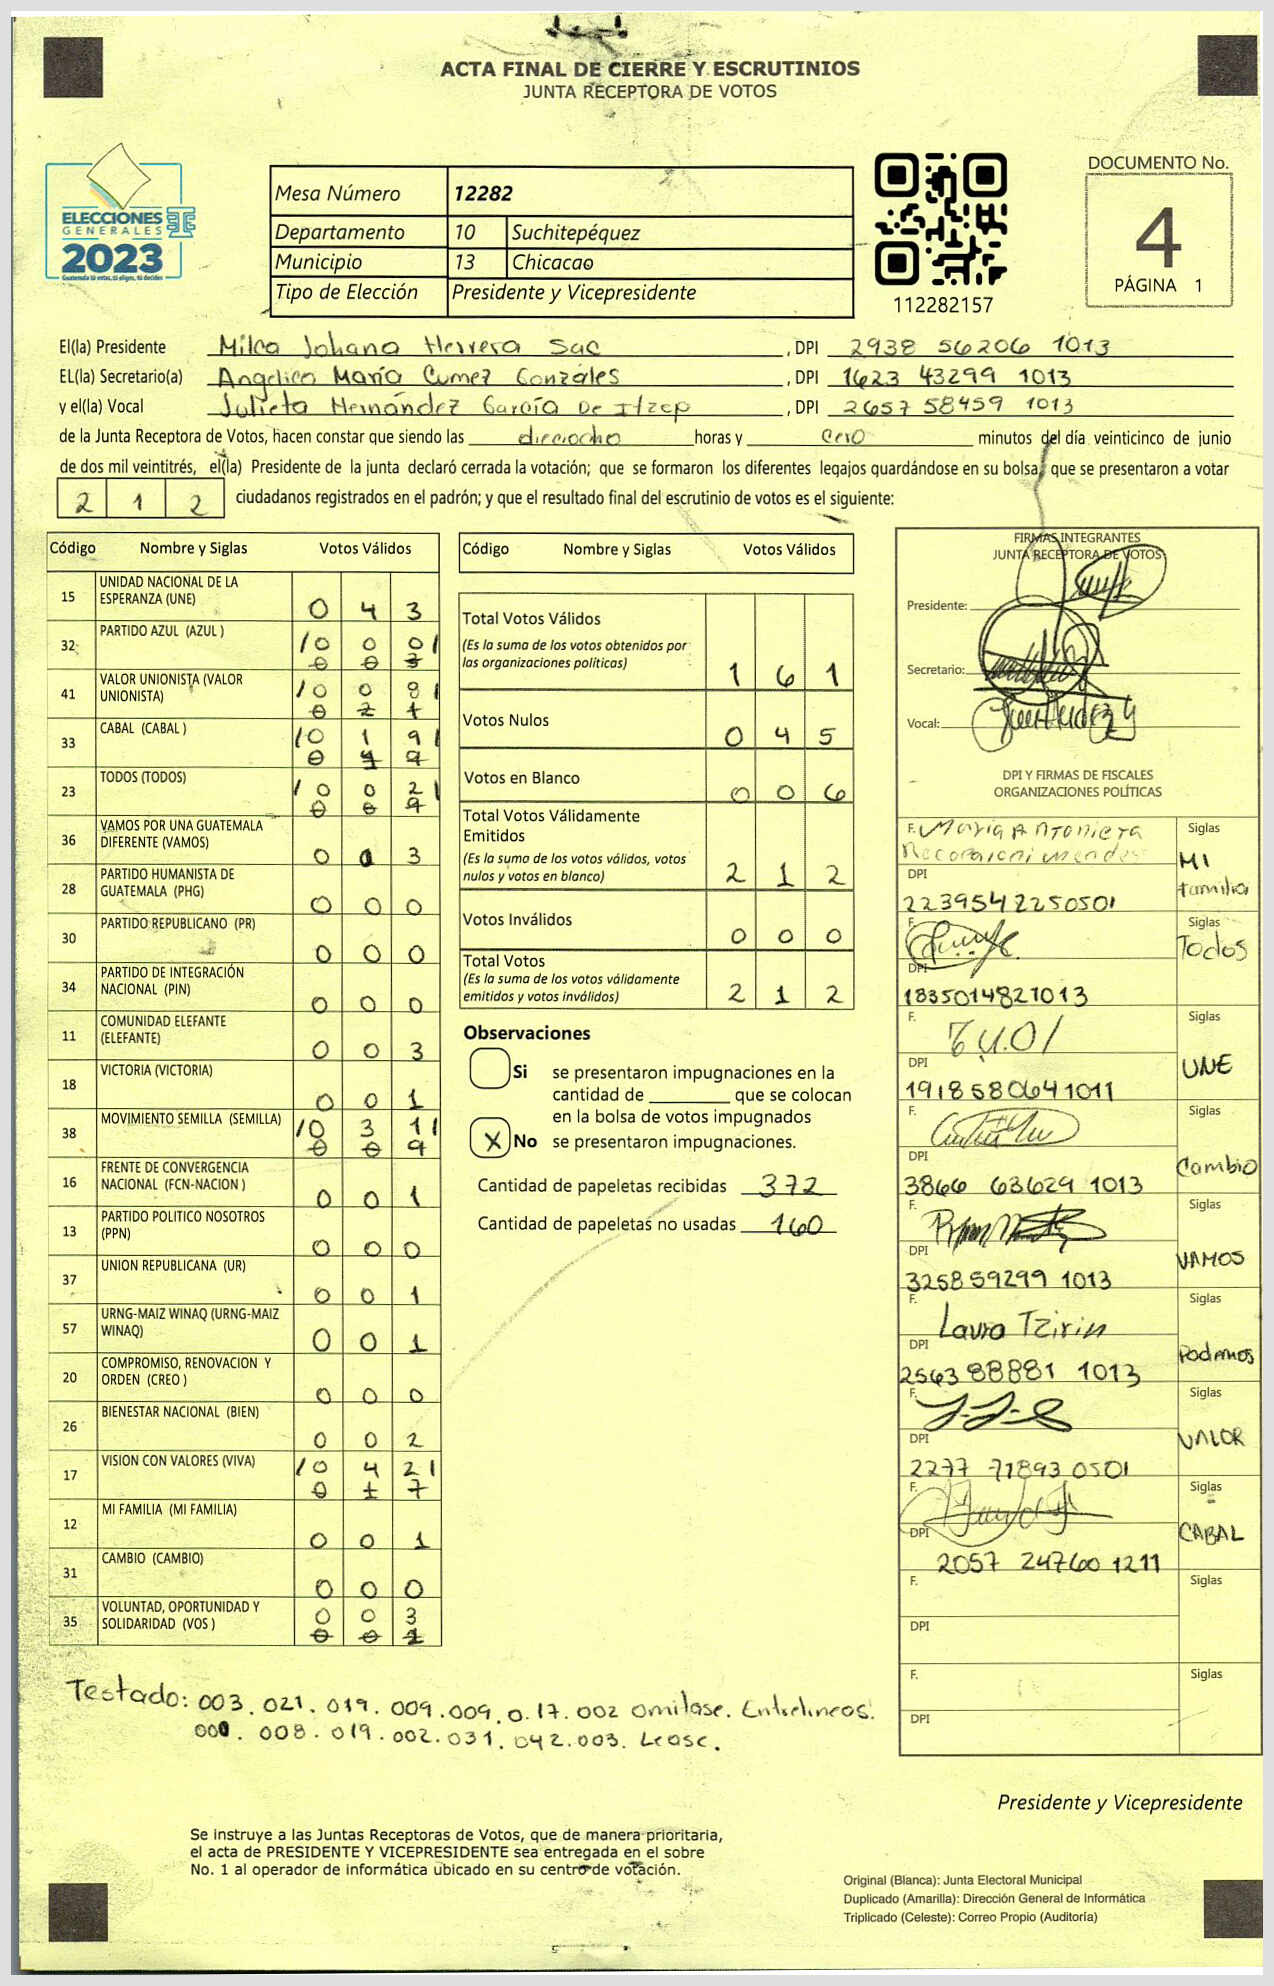 ACTA FINAL DE CIERRE Y ESCRUTINIOS
JUNTA RECEPTORA DE VOTOS
ELECCIONES
GENERALES
2023
Guatemala tú votas, tú eliges, tú decides
Mesa Número 12282
Departamento 10 Suchitepéquez
Municipio 13 Chicacao
Tipo de Elección Presidente y Vicepresidente
112282157
DOCUMENTO No.
4
PÁGINA 1
El(la) Presidente Milca Johana Herrera Sac, DPI 2938 56206 1013
EL(la) Secretario(a) Angelica María Cumez Gonzáles, DPI 1623 43299 1013
y el(la) Vocal Julieta Hernández García De Itzep, DPI 2657 58459 1013
de la Junta Receptora de Votos, hacen constar que siendo las dieciocho horas y cero minutos del día veinticinco de junio
de dos mil veintitrés, el(la) Presidente de la junta declaró cerrada la votación; que se formaron los diferentes legajos guardándose en su bolsa, que se presentaron a votar
2 1 2 ciudadanos registrados en el padrón; y que el resultado final del escrutinio de votos es el siguiente:
Código Nombre y Siglas Votos Válidos
15 UNIDAD NACIONAL DE LA ESPERANZA (UNE) 0 4 3
32 PARTIDO AZUL (AZUL ) /0 0 0/
0 0 3
41 VALOR UNIONISTA (VALOR UNIONISTA) /0 0 8/
0 2 1
33 CABAL (CABAL ) /0 1 9/
0 1 9
23 TODOS (TODOS) /0 0 2/
0 0 9
36 VAMOS POR UNA GUATEMALA DIFERENTE (VAMOS) 0 0 3
28 PARTIDO HUMANISTA DE GUATEMALA (PHG) 0 0 0
30 PARTIDO REPUBLICANO (PR) 0 0 0
34 PARTIDO DE INTEGRACIÓN NACIONAL (PIN) 0 0 0
11 COMUNIDAD ELEFANTE (ELEFANTE) 0 0 3
18 VICTORIA (VICTORIA) 0 0 1
38 MOVIMIENTO SEMILLA (SEMILLA) /0 3 1/
0 0 9
16 FRENTE DE CONVERGENCIA NACIONAL (FCN-NACION ) 0 0 1
13 PARTIDO POLITICO NOSOTROS (PPN) 0 0 0
37 UNION REPUBLICANA (UR) 0 0 1
57 URNG-MAIZ WINAQ (URNG-MAIZ WINAQ) 0 0 1
20 COMPROMISO, RENOVACION Y ORDEN (CREO ) 0 0 0
26 BIENESTAR NACIONAL (BIEN) 0 0 2
17 VISION CON VALORES (VIVA) /0 4 2/
0 1 7
12 MI FAMILIA (MI FAMILIA) 0 0 1
31 CAMBIO (CAMBIO) 0 0 0
35 VOLUNTAD, OPORTUNIDAD Y SOLIDARIDAD (VOS ) 0 0 3
0 0 2
Código Nombre y Siglas Votos Válidos
Total Votos Válidos
(Es la suma de los votos obtenidos por
las organizaciones políticas) 1 6 1
Votos Nulos 0 4 5
Votos en Blanco 0 0 6
Total Votos Válidamente
Emitidos
(Es la suma de los votos válidos, votos
nulos y votos en blanco) 2 1 2
Votos Inválidos 0 0 0
Total Votos
(Es la suma de los votos válidamente
emitidos y votos inválidos) 2 1 2
Observaciones
Si se presentaron impugnaciones en la
cantidad de ________ que se colocan
en la bolsa de votos impugnados
X No se presentaron impugnaciones.
Cantidad de papeletas recibidas 372
Cantidad de papeletas no usadas 160
FIRMAS INTEGRANTES
JUNTA RECEPTORA DE VOTOS
Presidente:
Secretario:
Vocal:
DPI Y FIRMAS DE FISCALES
ORGANIZACIONES POLÍTICAS
F. Maria Antonieta Siglas
MI familia
DPI
2239542250501
F. Siglas
Todos
DPI
1835014821013
F. Siglas
UNE
DPI
1918580641011
F. Siglas
Cambio
DPI
3866 63629 1013
F. Siglas
VAMOS
DPI
325859299 1013
F. Laura Tzirin Siglas
Podemos
DPI
2563 88881 1013
F. Siglas
VALOR
DPI
2277 71893 0501
F. Siglas
CABAL
DPI
2057 24760 1211
F. Siglas
DPI
F. Siglas
DPI
Testado: 003. 021. 019. 009. 009. 0.17. 002 Omitase. Entrelineas:
000. 008. 019. 002. 031. 042. 003. Lease.
Presidente y Vicepresidente
Se instruye a las Juntas Receptoras de Votos, que de manera prioritaria,
el acta de PRESIDENTE Y VICEPRESIDENTE sea entregada en el sobre
No. 1 al operador de informática ubicado en su centro de votación.
Original (Blanca): Junta Electoral Municipal
Duplicado (Amarilla): Dirección General de Informática
Triplicado (Celeste): Correo Propio (Auditoría)